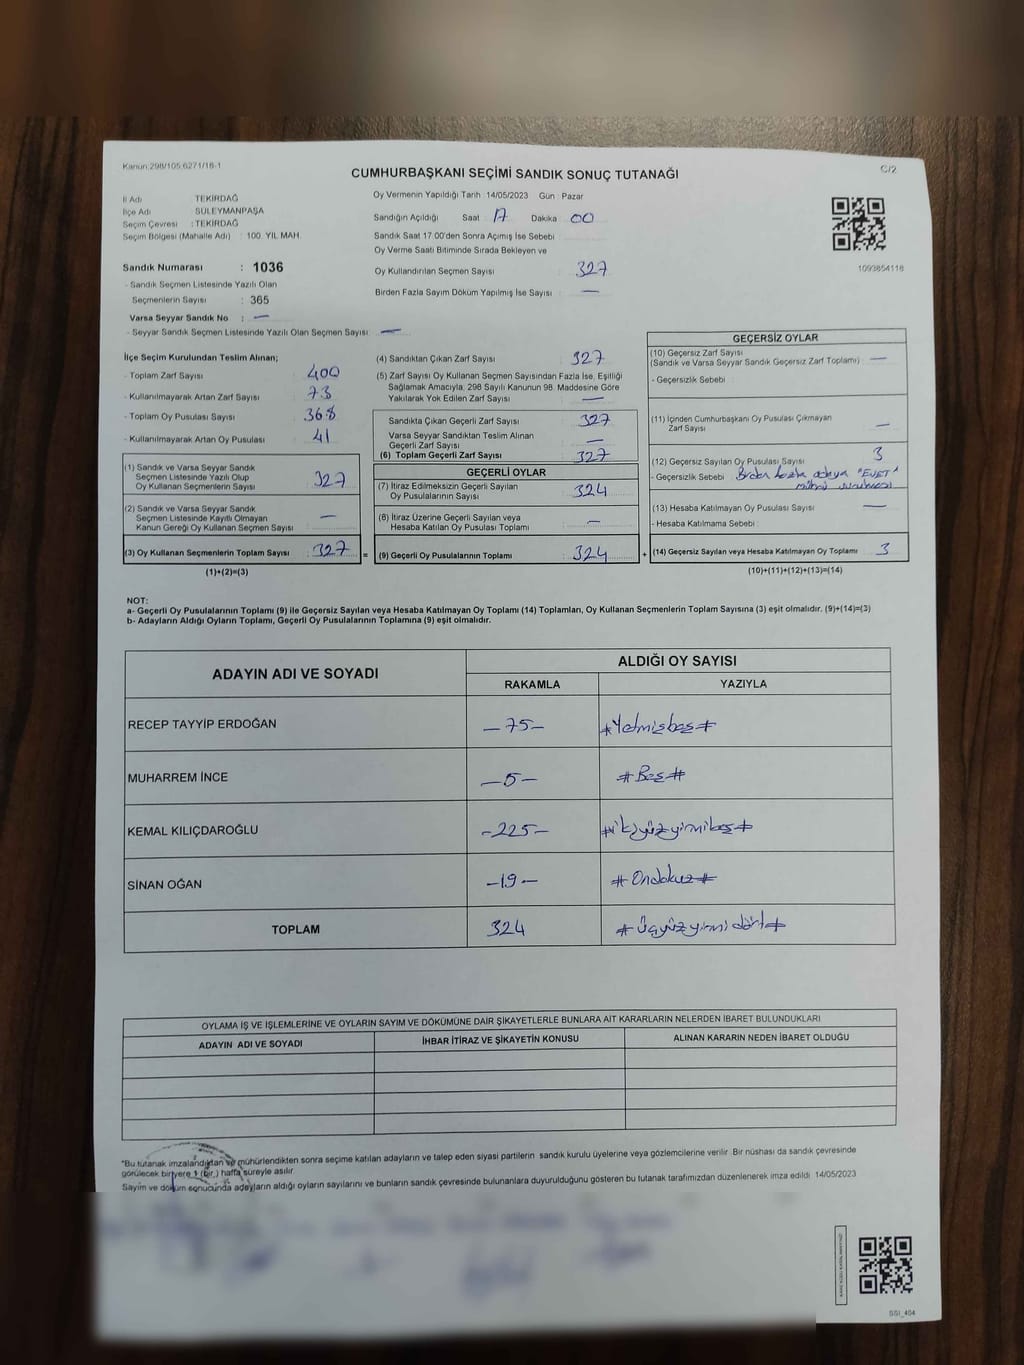 Kanun:298/105,6271/18-1
C/2
CUMHURBAŞKANI SEÇİMİ SANDIK SONUÇ TUTANAĞI
İl Adı TEKİRDAĞ
İlçe Adı SÜLEYMANPAŞA
Seçim Çevresi : TEKİRDAĞ
Seçim Bölgesi (Mahalle Adı) : 100. YIL MAH.
Oy Vermenin Yapıldığı Tarih :14/05/2023 Gün : Pazar
Sandığın Açıldığı Saat 17 Dakika 00
Sandık Saat 17:00'den Sonra Açımış İse Sebebi
Oy Verme Saati Bitiminde Sırada Bekleyen ve
Oy Kullandırılan Seçmen Sayısı 327
Birden Fazla Sayım Döküm Yapılmış İse Sayısı : —
1093854118
Sandık Numarası : 1036
- Sandık Seçmen Listesinde Yazılı Olan
Seçmenlerin Sayısı : 365
Varsa Seyyar Sandık No : —
- Seyyar Sandık Seçmen Listesinde Yazılı Olan Seçmen Sayısı: —
İlçe Seçim Kurulundan Teslim Alınan;
- Toplam Zarf Sayısı 400
- Kullanılmayarak Artan Zarf Sayısı 73
- Toplam Oy Pusulası Sayısı 368
- Kullanılmayarak Artan Oy Pusulası 41
(1) Sandık ve Varsa Seyyar Sandık
Seçmen Listesinde Yazılı Olup
Oy Kullanan Seçmenlerin Sayısı 327
(2) Sandık ve Varsa Seyyar Sandık
Seçmen Listesinde Kayıtlı Olmayan
Kanun Gereği Oy Kullanan Seçmen Sayısı —
(3) Oy Kullanan Seçmenlerin Toplam Sayısı 327 =
(1)+(2)=(3)
(4) Sandıktan Çıkan Zarf Sayısı 327
(5) Zarf Sayısı Oy Kullanan Seçmen Sayısından Fazla İse, Eşitliği
Sağlamak Amacıyla, 298 Sayılı Kanunun 98. Maddesine Göre
Yakılarak Yok Edilen Zarf Sayısı —
Sandıkta Çıkan Geçerli Zarf Sayısı 327
Varsa Seyyar Sandıktan Teslim Alınan
Geçerli Zarf Sayısı —
(6) Toplam Geçerli Zarf Sayısı 327
GEÇERLİ OYLAR
(7) İtiraz Edilmeksizin Geçerli Sayılan
Oy Pusulalarının Sayısı 324
(8) İtiraz Üzerine Geçerli Sayılan veya
Hesaba Katılan Oy Pusulası Toplamı —
(9) Geçerli Oy Pusulalarının Toplamı 324 +
GEÇERSİZ OYLAR
(10) Geçersiz Zarf Sayısı
(Sandık ve Varsa Seyyar Sandık Geçersiz Zarf Toplamı) : —
- Geçersizlik Sebebi :
(11) İçinden Cumhurbaşkanı Oy Pusulası Çıkmayan
Zarf Sayısı —
(12) Geçersiz Sayılan Oy Pusulası Sayısı 3
- Geçersizlik Sebebi Birden fazla adaya "EVET"
mührü vurulması
(13) Hesaba Katılmayan Oy Pusulası Sayısı —
- Hesaba Katılmama Sebebi :
(14) Geçersiz Sayılan veya Hesaba Katılmayan Oy Toplamı 3
(10)+(11)+(12)+(13)=(14)
NOT:
a- Geçerli Oy Pusulalarının Toplamı (9) ile Geçersiz Sayılan veya Hesaba Katılmayan Oy Toplamı (14) Toplamları, Oy Kullanan Seçmenlerin Toplam Sayısına (3) eşit olmalıdır. (9)+(14)=(3)
b- Adayların Aldığı Oyların Toplamı, Geçerli Oy Pusulalarının Toplamına (9) eşit olmalıdır.
ADAYIN ADI VE SOYADI ALDIĞI OY SAYISI
RAKAMLA YAZIYLA
RECEP TAYYİP ERDOĞAN —75— #Yetmişbeş#
MUHARREM İNCE —5— #Beş#
KEMAL KILIÇDAROĞLU —225— #ikiyüzyirmibeş#
SİNAN OĞAN —19— #Ondokuz#
TOPLAM 324 #Üçyüzyirmidört#
OYLAMA İŞ VE İŞLEMLERİNE VE OYLARIN SAYIM VE DÖKÜMÜNE DAİR ŞİKAYETLERLE BUNLARA AİT KARARLARIN NELERDEN İBARET BULUNDUKLARI
ADAYIN ADI VE SOYADI İHBAR İTİRAZ VE ŞİKAYETİN KONUSU ALINAN KARARIN NEDEN İBARET OLDUĞU
*Bu tutanak imzalandıktan ve mühürlendikten sonra seçime katılan adayların ve talep eden siyasi partilerin sandık kurulu üyelerine veya gözlemcilerine verilir. Bir nüshası da sandık çevresinde
görülecek bir yere 1 (bir) hafta süreyle asılır.
Sayım ve döküm sonucunda adayların aldığı oyların sayılarını ve bunların sandık çevresinde bulunanlara duyurulduğunu gösteren bu tutanak tarafımızdan düzenlenerek imza edildi. 14/05/2023
SSI_404